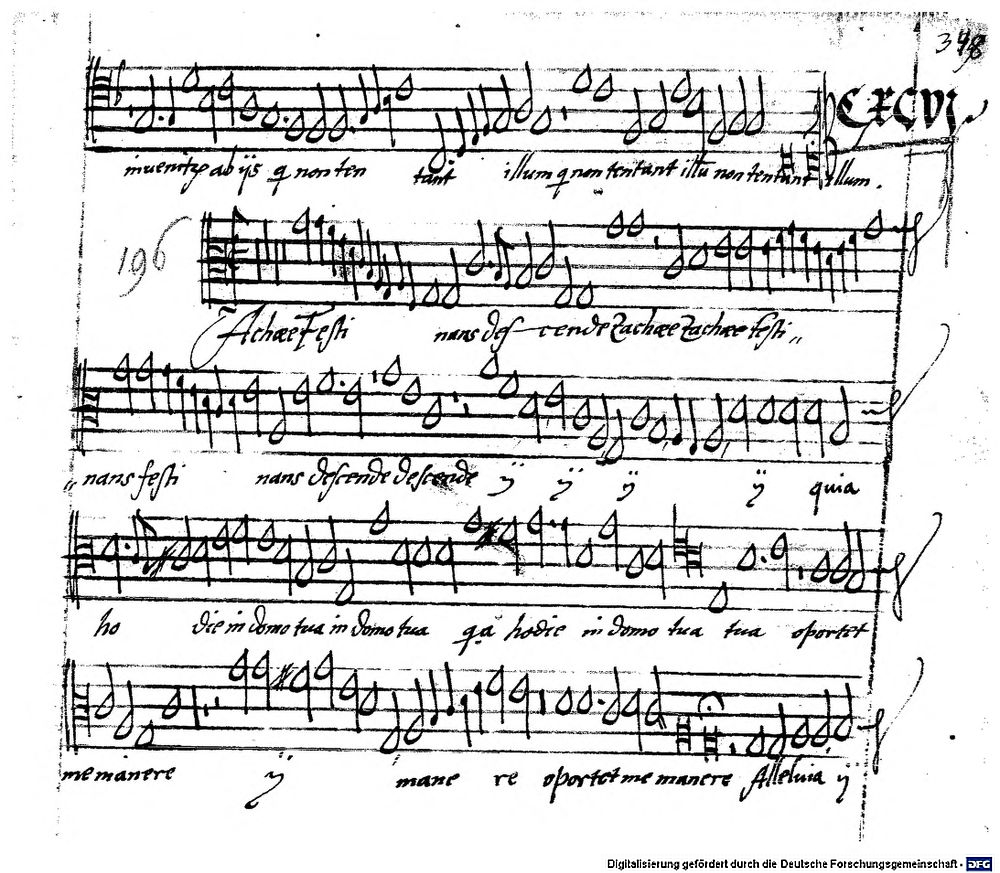 348
CXCVI.
inuenitur ab ijs q non ten tant illum q non tentant illū non tentant illum.
196
Zachæe Festi nans des- cende Zachæe Zachæe festi„
„nans festi nans descende descende ij ij ij ij quia
ho die in domo tua in domo tua qa hodie in domo tua tua oportet
me manere ij mane re oportet me manere Alleluia ij
Digitalisierung gefördert durch die Deutsche Forschungsgemeinschaft - DFG